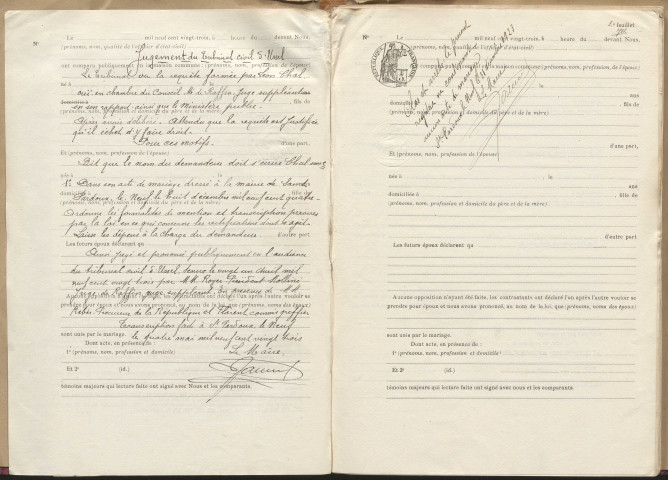 Nº mil neuf cent vingt-trois, à heure du devant Nous,
(prénoms, nom, qualité de l'officier d'état-civil)
Jugement du Tribunal civil d'Ussel
ont comparu publiquement en la maison commune (prénoms, nom, profession de l'époux)
Le Tribunal vu la requête formée par
né à
ouï en chambre du Conseil M. de Raffin Juge suppléant
domicilié à fils de
en son rapport ainsi que le ministère public
(prénoms, noms, profession et domicile du père et de la mère)
Après avoir délibéré. Attendu que la requête est justifiée
qu'il échet d'y faire droit.
Pour ces motifs. d'une part,
Et (prénoms, nom, profession de l'épouse)
Dit que le nom du demandeur doit s'écrire
née à
1º Dans son acte de mariage dressé à la mairie de Saint
domiciliée à fille de
Pardoux le Neuf le huit décembre mil neuf cent
(prénoms, noms, profession et domicile du père et de la mère)
Ordonne les formalités de mention et transcription prescrites
par la loi en ce qui concerne les rectifications dont il s'agit
Laisse les dépens à la charge du demandeur d'autre part
Les futurs époux déclarent qu
Ainsi jugé et prononcé publiquement en l'audience
du tribunal civil d'Ussel le vingt un avril mil
neuf cent vingt trois par M.M. Roger Président
Juge de Raffin juge suppléant, en présence de M.
Aucune opposition n'ayant été faite, les contractants ont déclaré l'un après l'autre vouloir se
prendre pour époux et nous avons prononcé, au nom de la loi, que (prénoms, noms des époux)
Procureur de la République et Florent commis greffier
Transcription faite à St Pardoux le Neuf
sont unis par le mariage.
le quatre mai mil neuf cent vingt trois
Dont acte, en présence de :
Le Maire
1º (prénoms, nom, profession et domicile)
Et 2º (id.)
témoins majeurs qui lecture faite ont signé avec Nous et les comparants.
feuillet
Nº mil neuf cent vingt-trois, à heure du devant Nous,
(prénoms, nom, qualité de l'officier d'état-civil)
Clos et arrêté le présent
Le Maire
né à
domicilié à fils de
(prénoms, noms, profession et domicile du père et de la mère)
d'une part,
Et (prénoms, nom, profession de l'épouse)
née à
domiciliée à fille de
(prénoms, noms, profession et domicile du père et de la mère)
d'autre part
Les futurs époux déclarent qu
Aucune opposition n'ayant été faite, les contractants ont déclaré l'un après l'autre vouloir se
prendre pour époux et nous avons prononcé, au nom de la loi, que (prénoms, noms des époux)
sont unis par le mariage.
Dont acte, en présence de :
1º (prénoms, nom, profession et domicile)
Et 2º (id.)
témoins majeurs qui lecture faite ont signé avec Nous et les comparants.